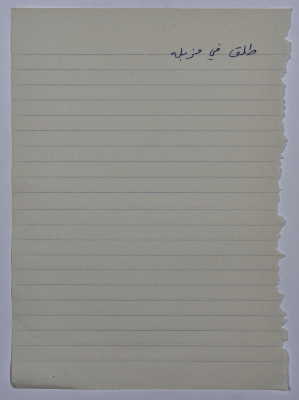 طلق في مزبله